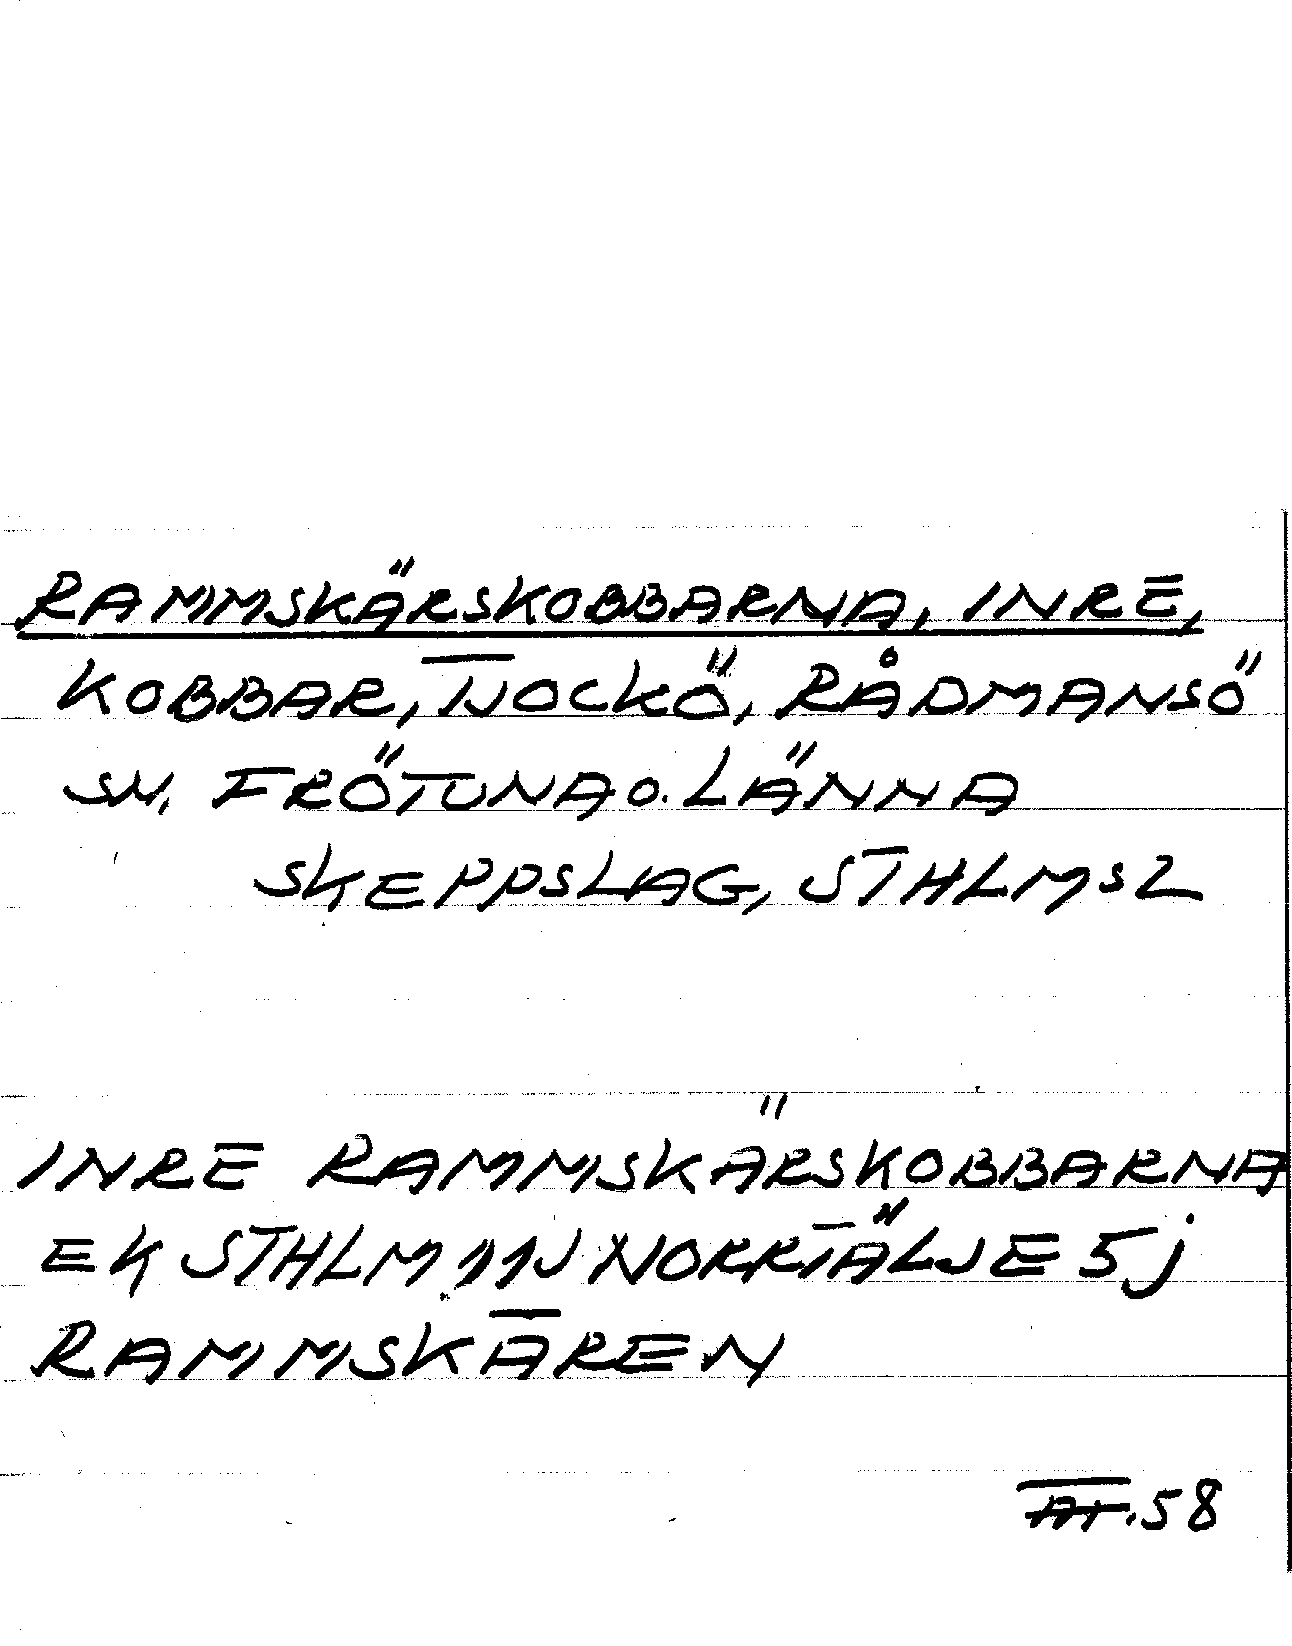 RAMMSKÄRSKOBBARNA, INRE,
KOBBAR, TJOCKÖ, RÅDMANSÖ
SN, FRÖTUNA O. LÄNNA
SKEPPSLAG, STHLMSL
INRE RAMMSKÄRSKOBBARNA
EK STHLM 11J NORRTÄLJE 5j
RAMMSKÄREN
.58